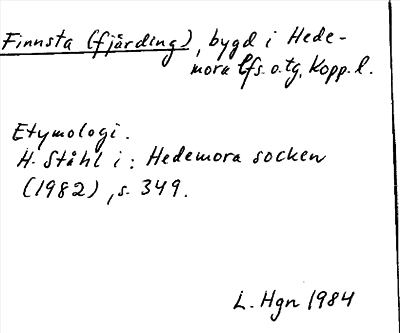 Finnsta (fjärding), bygd i Hede-
mora lfs. o. tg, Kopp. l.
Etymologi.
H. Ståhl i: Hedemora socken
(1982), s. 349.
L. Hgn 1984